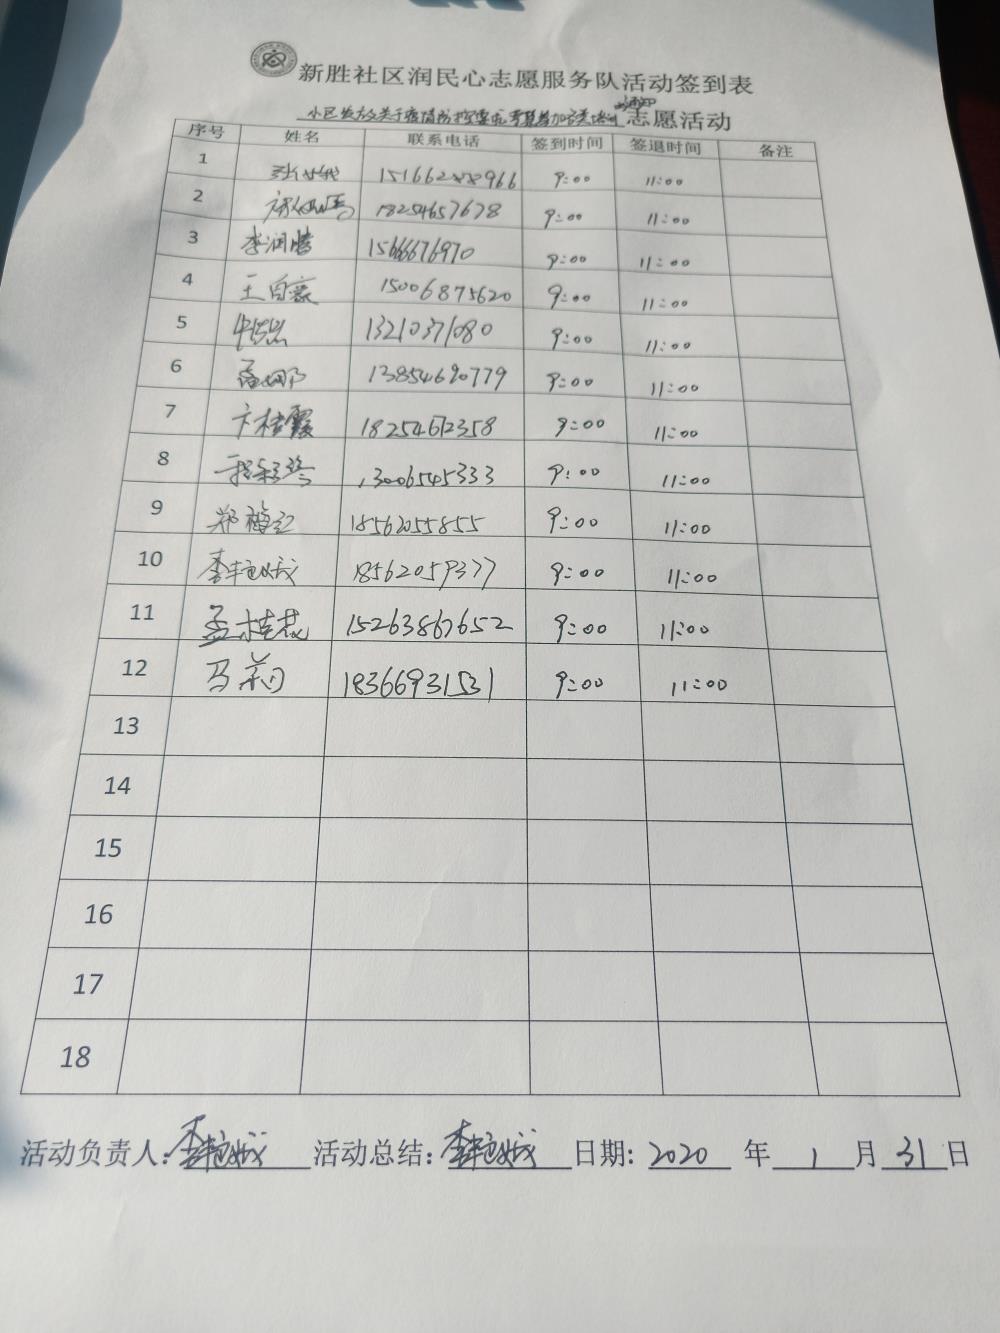 新胜社区润民心志愿服务队活动签到表
小区发放关于疫情防控 通知 志愿活动
序号 姓名 联系电话 签到时间 签退时间 备注
1 9:00 11:00
2 18254657678 9:00 11:00
3 李润腾 15666676970 9:00 11:00
4 王自豪 15006875620 9:00 11:00
5 13210371080 9:00 11:00
6 13854690779 9:00 11:00
7 卞桂霞 18254672358 9:00 11:00
8 13006545333 9:00 11:00
9 郑梅红 18562055855 9:00 11:00
10 李艳城 18562059377 9:00 11:00
11 孟桂花 15263867652 9:00 11:00
12 马莉 18366931531 9:00 11:00
13
14
15
16
17
18
活动负责人: 活动总结: 日期: 2020 年 1 月 31 日